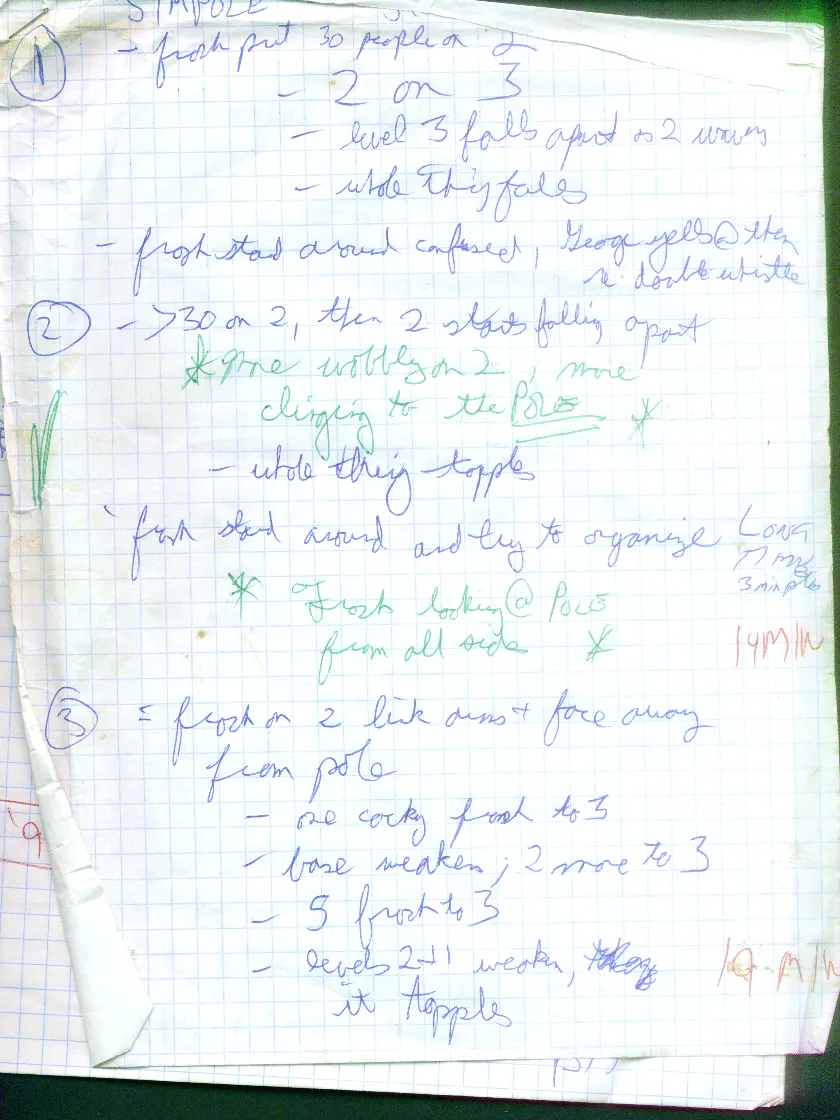 SIMPOLE
① - frosh put 30 people on 2
- 2 on 3
- level 3 falls apart as 2 wavers
- whole thing falls
- frosh stand around confused, George yells @ them
re: double whistle
② - >30 on 2, then 2 starts falling apart
* more wobbly on 2, more
clinging to the POLE *
- whole thing topples
frosh stand around and try to organize LONG
TIME
3 min plus
* Frosh looking @ POLE
from all sides *
14 MIN
③ - frosh on 2 link arms + face away
from pole
- one cocky frosh to 3
'9
- base weakens; 2 more to 3
- 5 frosh to 3
- levels 2+1 weaken,
it topples
19 MIN